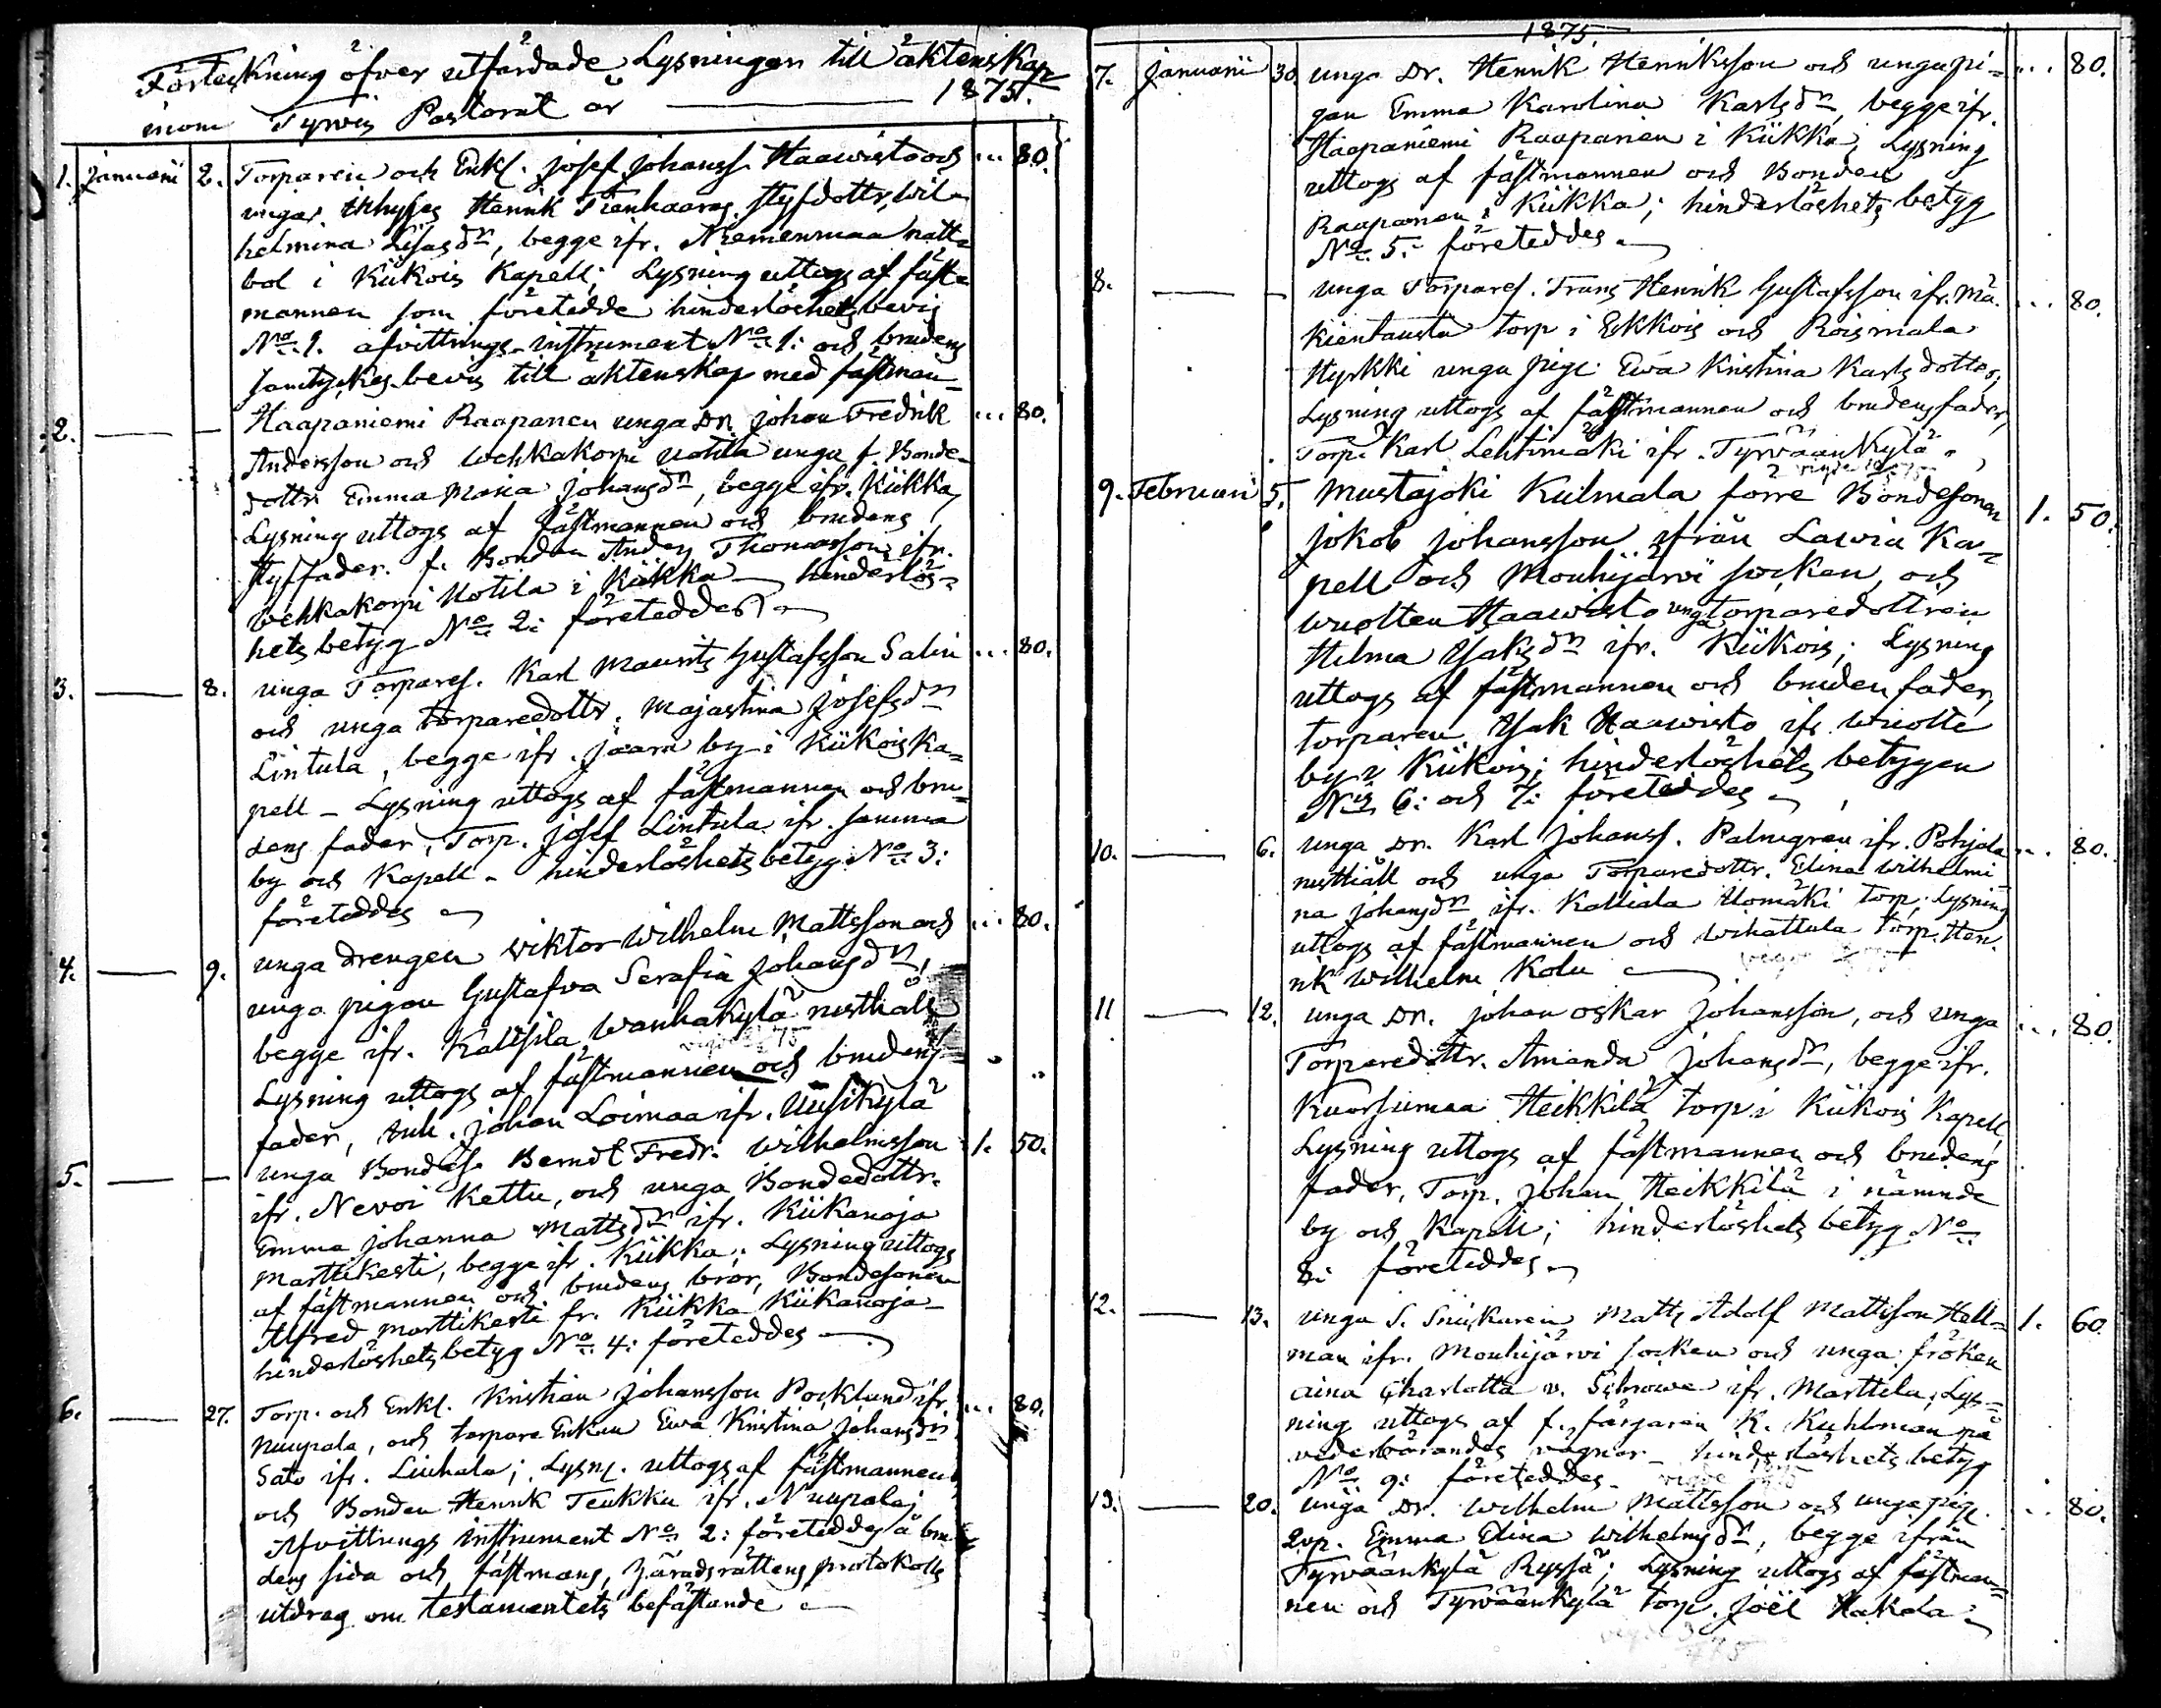 Förteckning öfver utfärdade Lysningar till äktenskap
inom Tyrvis Pastorat år — 1875.
1. Januarii 2. Torparen och Enkl. Josef Johanss. Haawisto och ... 80.
ungar Inhyses Henrik Tienhaaras styfdottr, Wil-
helmina Lisasdr, begge ifr. Niemenmaa ratt-
bol i Kiikois Kapell; Lysning uttogs af fäst-
mannen som företedde hinderlöshets bevis
No 1. afvittrings-instrument No 1: och brudens
samtyckes-bevis till äktenskap med fästman-
2. — — Haapaniemi Raapanen unga Dr. Johan Fredrik ... 80.
Andersson och Wehkakorpi Uotila unga f. Bonde-
dottr. Emma Maria Johansdr, begge ifr. Kiikka,
Lysning uttogs af fästmannen och brudens
styffader. f. Bonden Anders Thomasson ifr.
Wehkakorpi Uotila i Kiikka — hinderlös-
hets betyg No 2: företeddes —
3. — 8. unga Torpares. Karl Maurits Gustafsson Salin ... 80.
och unga torparedottr. Majastina Josefsdr
Lintula, begge ifr. Jaara by i Kiikois Ka-
pell - Lysning uttogs af fästmannen och bru-
dens fader, Torp. Josef Lintula ifr. samma
by och Kapell - hinderlöshets betyg No 3:
företeddes —
4. — 9. unga drengen Wiktor Wilhelm Mattsson och ... 80.
unga pigan Gustafva Serafia Johansdr,
begge ifr. Kaltsila Wanhakylä rusthåll
Lysning uttogs af fästmannen och brudens
fader, Inh. Johan Loimaa ifr. Uusikylä
5. — — unga Bondes. Berndt Fredr. Wilhelmsson 1. 50.
ifr. Nevoi Kettu, och unga Bondedottr.
Emma Johanna Mattsdr ifr. Kiikanoja
Marttikesti, begge ifr. Kiikka; Lysning uttogs
af fästmannen och brudens bror, Bondesonen
Alfred Marttikesti fr. Kiikka Kiikanoja -
hinderlöshets betyg No 4: företeddes —
6. — 27. Torp. och Enkl. Kristian Johansson Pocklund ifr. ... 80.
Nuupala, och torpare Enkan Ewa Kristina Johansdr
Sato ifr. Liuhala; Lysn. uttogs af fästmannen
och Bonden Henrik Teukku ifr. Nuupala;
Afvittrings instrument No 2: företeddes å bru-
dens sida och fästmans, häradsrättens protokolls
utdrag om testamentets befästande —
1875.
7. Januarii 30. unga Dr. Henrik Henriksson och unga pi- ... 80.
gan Emma Karolina Karlsdr, begge ifr.
Haapaniemi Raapanen i Kiikka, Lysning
uttogs af fästmannen och Bonden
Raapanen i Kiikka; hinderlöshets betyg
No 5: företeddes —
8. — — unga Torpares. Frans Henrik Gustafsson ifr. Mä- ... 80.
kientausta torp i Ekkois och Roismala
Hyrkki unga pige Ewa Kristina Karlsdotter;
Lysning uttogs af fästmannen och brudens fader,
Torp. Karl Lehtimäki ifr. Tyrväänkylä —
9. Februari 5. Mustajoki Kulmala förre Bondesonen 1. 50.
Jakob Johansson ifrån Lawia Ka-
pell och Mouhijärvi socken, och
Wuolten Haawisto unga torparedottren
Hilma Isaksdr ifr. Kiikois; Lysning
uttogs af fästmannen och bruden fader,
torparen Isak Haawisto ifr. Wuolte
by i Kiikois; hinderlöshets betygen
Nis 6: och 7: företeddes —
10. — 6. unga Dr. Karl Johanss. Palmgren ifr. Pohjala ... 80.
rusthåll och unga Torparedottr. Elina Wilhelmi-
na Johansdr ifr. Kalliala Uomäki torp; Lysning
uttogs af fästmannen och Wihattula torp. Hen-
rik Wilhelm Kolu —
11 — 12. unga Dr. Johan Oskar Johansson, och unga ... 80.
Torparedottr. Amanda Johansdr, begge ifr.
Kuorsumaa Heikkilä torp i Kiikois Kapell,
Lysning uttogs af fästmannen och brudens
fader, Torp. Johan Heikkilä i nämnde
by och Kapell; hinderlöshets betyg No
8: företeddes —
12. — 13. unga S. Snickaren Matts Adolf Mattsson Hell- 1. 60.
man ifr. Mouhijärvi socken och unga fröken
Aina Charlotta v. Schrowe ifr. Marttila; Lys-
ning uttogs af f. färgaren K. Kuhlman på
vederbörandes vägnar - hinderlöshets betyg
No 9: företeddes -
13. — 20. unga Dr. Wilhelm Mattsson och unga pige ... 80.
Qvp. Emma Elina Wilhelmsdr, begge ifrån
Tyrväänkylä Ryssä; Lysning uttogs af fästman-
nen och Tyrväänkylä torp. Joël Hakala —